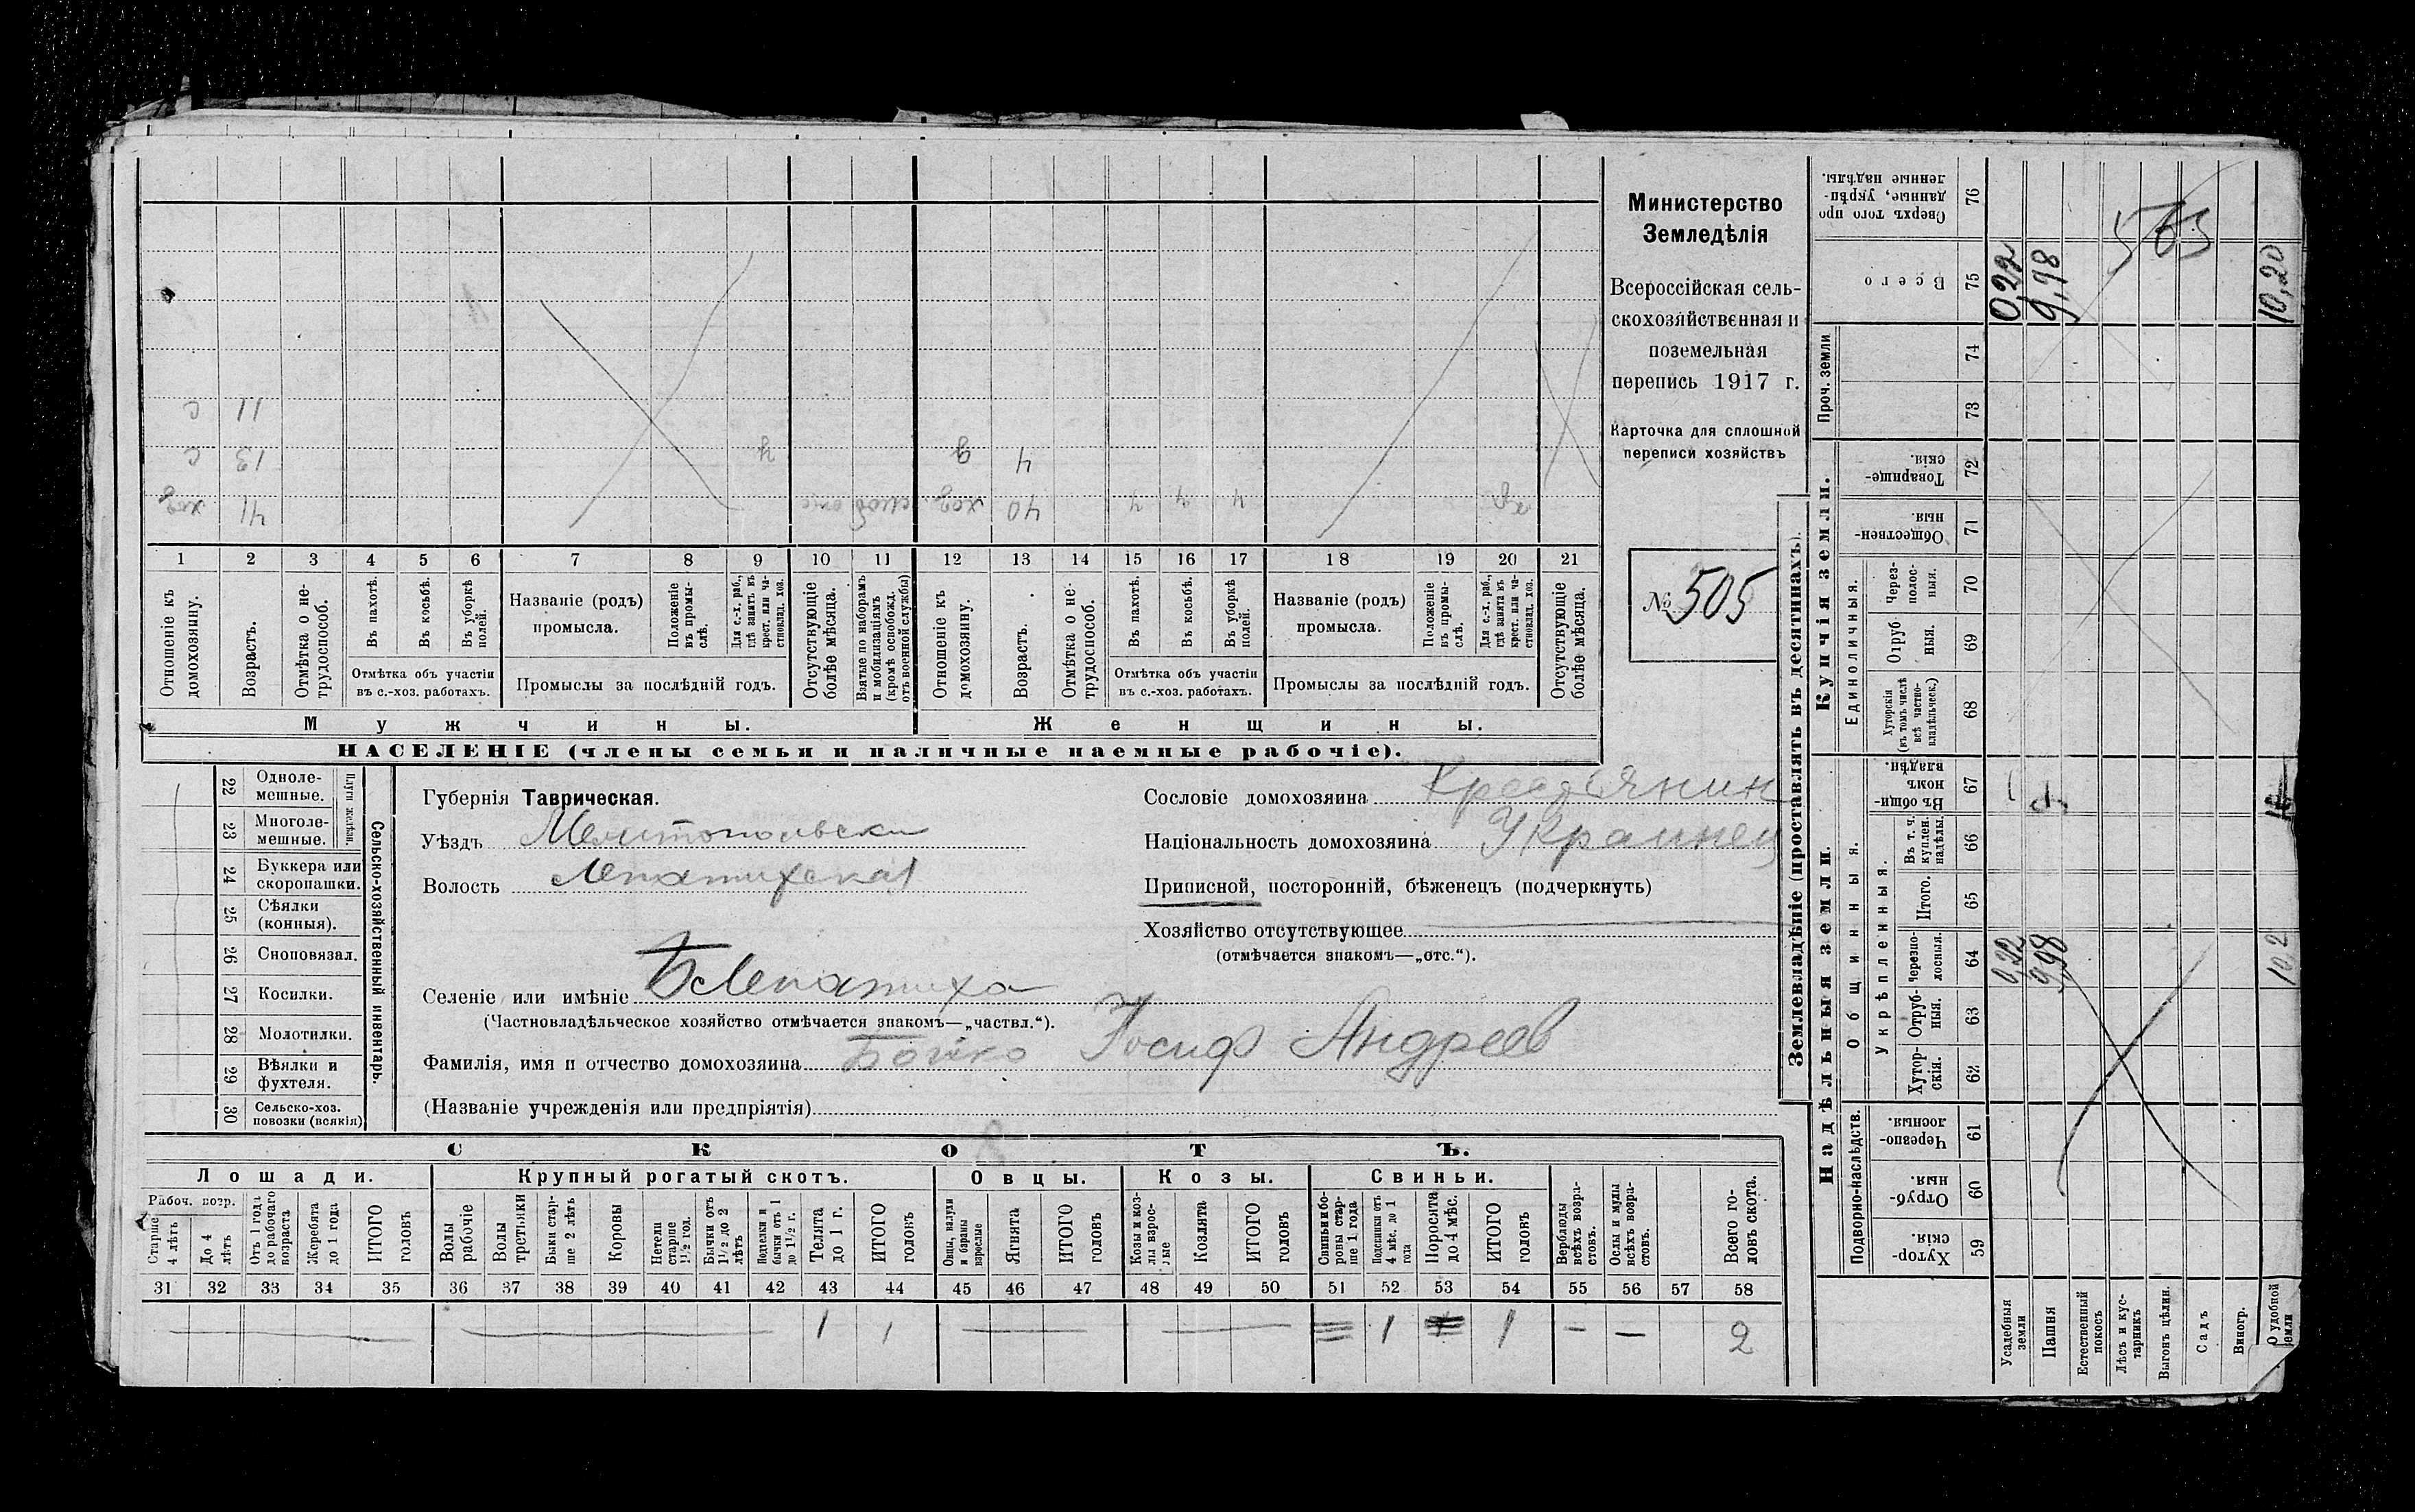 Министерство
Земледѣлія
Всероссійская сель-
скохозяйственная и
поземельная
перепись 1917 г.
Карточка для сплошной
переписи хозяйствъ
№ 505
с 11
с 13 ч д 4
хоз 41 хоз 40 ч ч ч
1 2 3 4 5 6 7 8 9 10 11 12 13 14 15 16 17 18 19 20 21
Отношеніе къ домохозяину.
Возрастъ.
Отмѣтка о не-трудоспособ.
Въ пахотѣ.
Въ косьбѣ.
Въ уборкѣ полей.
Отмѣтка объ участіи
въ с.-хоз. работахъ.
Названіе (родъ)
промысла.
Положеніе въ промы-слѣ.
Для с.-х. раб., гдѣ занятъ въ крест. или ча-стновлад. хоз.
Промыслы за послѣдній годъ.
Отсутствующіе болѣе мѣсяца.
Взятые по наборамъ и мобилизаціямъ (кромѣ освобожд. отъ военной службы)
Отношеніе къ домохозяину.
Возрастъ.
Отмѣтка о не-трудоспособ.
Въ пахотѣ.
Въ косьбѣ.
Въ уборкѣ полей.
Отмѣтка объ участіи
въ с.-хоз. работахъ.
Названіе (родъ)
промысла.
Положеніе въ промы-слѣ.
Для с.-х. раб., гдѣ занята въ крест. или ча-стновлад. хоз.
Промыслы за послѣдній годъ.
Отсутствующіе болѣе мѣсяца.
Мужчины. Женщины.
НАСЕЛЕНІЕ (члены семьи и наличные наемные рабочіе).
Сельско-хозяйственный инвентарь.
Плуги желѣзн.
22 Одноле-мешные.
23 Многоле-мешные.
24 Буккера или скоропашки.
25 Сѣялки (конныя).
26 Сноповязал.
27 Косилки.
28 Молотилки.
29 Вѣялки и фухтеля.
30 Сельско-хоз. повозки (всякія)
Губернія Таврическая.
Уѣздъ Мелитопольски
Волость Лепатихская
Селеніе или имѣніе Б Лепатиха
(Частновладѣльческое хозяйство отмѣчается знакомъ—„частвл.“).
Фамилія, имя и отчество домохозяина Бойко Иосиф Андреев
(Названіе учрежденія или предпріятія)
Сословіе домохозяина Крестьянин
Національность домохозяина Украинец
Приписной, посторонній, бѣженецъ (подчеркнуть)
Хозяйство отсутствующее
(отмѣчается знакомъ—„отс.“).
СКОТЪ.
Лошади. Крупный рогатый скотъ. Овцы. Козы. Свиньи.
Рабоч. возр.
Старше 4 лѣтъ
До 4 лѣтъ
Отъ 1 года до рабочаго возраста
Жеребята до 1 года
ИТОГО головъ
Волы рабочіе
Волы третьяки
Быки стар-ше 2 лѣтъ
Коровы
Нетели старше 1½ год.
Бычки отъ 1½ до 2 лѣтъ
Подтелки и бычки отъ 1 до 1½ г.
Телята до 1 г.
ИТОГО головъ
Овцы, валухи и бараны взрослые
Ягнята
ИТОГО головъ
Козы и коз-лы взрос-лые
Козлята
ИТОГО головъ
Свиньи и бо-ровы стар-ше 1 года
Подсвинки отъ 4 мѣс. до 1 года
Поросята до 4 мѣс.
ИТОГО головъ
Верблюды всѣхъ возра-стовъ.
Ослы и мулы всѣхъ возра-стовъ.
Всего го-ловъ скота.
31 32 33 34 35 36 37 38 39 40 41 42 43 44 45 46 47 48 49 50 51 52 53 54 55 56 57 58
1 1 1 1 — — 2
Землевладѣніе (проставлять въ десятинахъ).
Надѣльныя земли. Купчія земли.
Подворно-наслѣдств.
Общинныя.
Укрѣпленныя.
Единоличныя.
Проч. земли
Хутор-скія. 59
Отруб-ныя. 60
Черезпо-лосныя. 61
Хутор-скія. 62
Отруб-ныя. 63
Черезпо-лосныя. 64
Итого. 65
Въ т. ч. куплен. надѣлы. 66
Въ общи-номъ владѣн. 67
Хуторскія (въ томъ числѣ всѣ частно-владѣльческ.) 68
Отруб-ныя. 69
Через-полос-ныя. 70
Обществен-ныя. 71
Товарище-скія. 72
73
74
Всего 75
Сверхъ того про-данные, укрѣп-ленные надѣлы. 76
Усадебныя земли 0,22 0,22
Пашня 9,98 9,98
Естественный покосъ
Лѣсъ и кус-тарникъ
Выгонъ цѣлин.
Садъ
Виногр.
О удобной земли 10,2 10,20
565